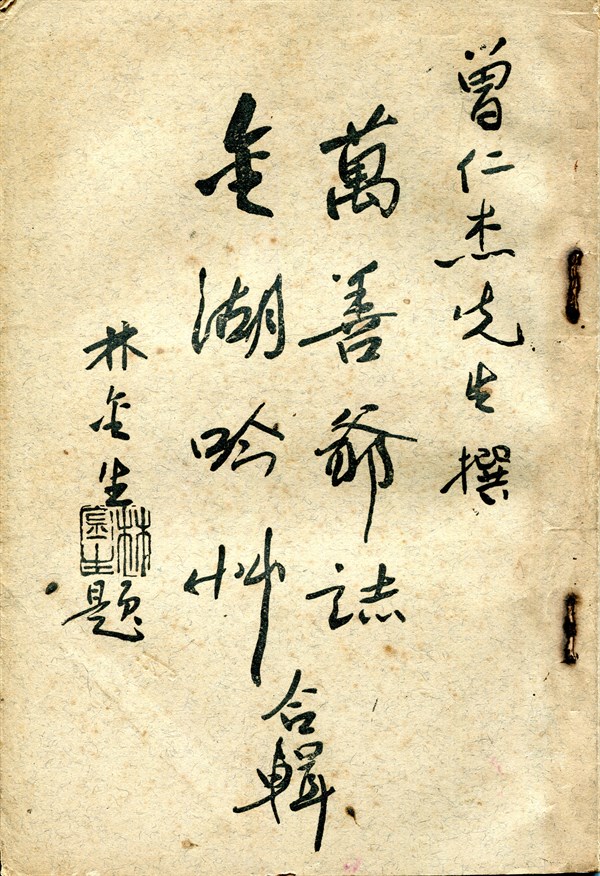 曾仁杰先生撰
萬善爺誌
金湖吟艸
合輯
林金生題
林金生